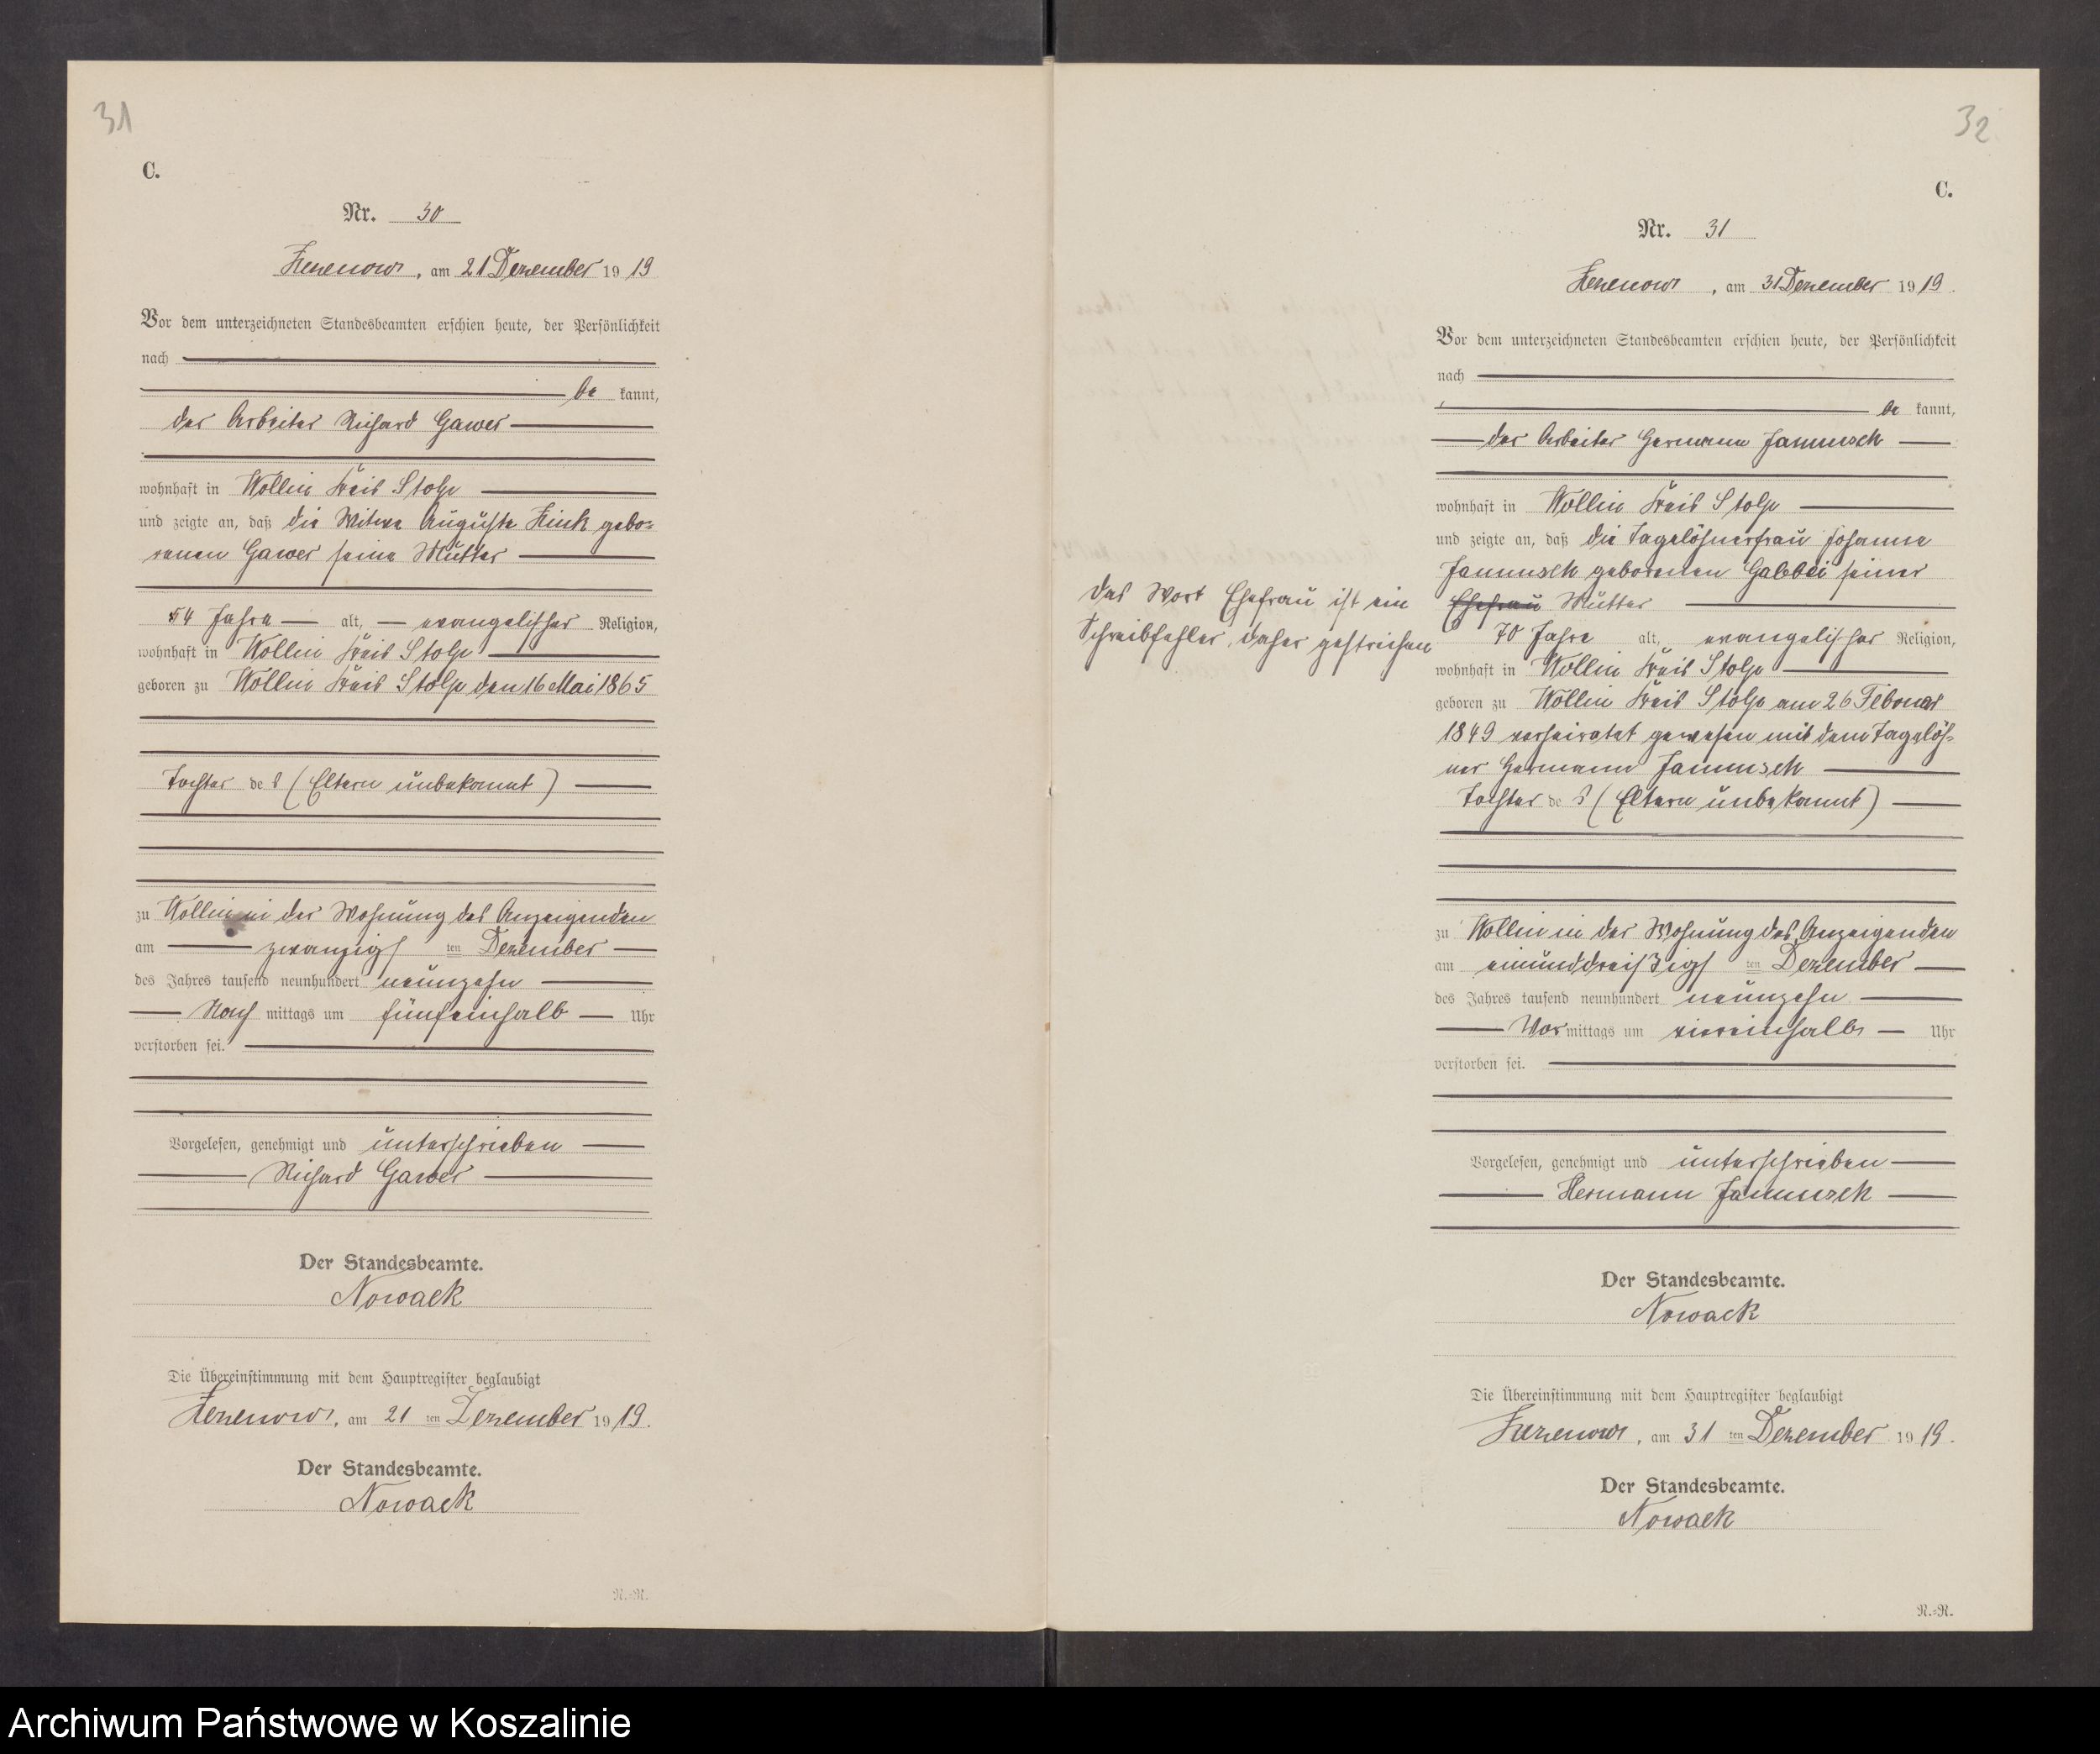 31
C.
Nr. 30
Zezenow, am 21 Dezember 1919
Vor dem unterzeichneten Standesbeamten erschien heute, der Persönlichkeit
nach
be kannt,
der Arbeiter Richard Gawer
wohnhaft in Wollin Kreis Stolp
und zeigte an, daß die Witwe Auguste Zink gebo-
renen Gawer seine Mutter
54 Jahre alt, evangelischer Religion,
wohnhaft in Wollin Kreis Stolp
geboren zu Wollin Kreis Stolp den 16 Mai 1865
Tochter des (Eltern unbekannt)
zu Wollin in der Wohnung des Anzeigenden
am zwanzigsten Dezember
des Jahres tausend neunhundert neunzehn
Nach mittags um fünfeinhalb Uhr
verstorben sei.
Vorgelesen, genehmigt und unterschrieben
Richard Gawer
Der Standesbeamte.
Nowack
Die Übereinstimmung mit dem Hauptregister beglaubigt
Zezenow, am 21 ten Dezember 1919.
Der Standesbeamte.
Nowack
R.-R.
32
C.
Nr. 31
Zezenow, am 31 Dezember 1919.
Vor dem unterzeichneten Standesbeamten erschien heute, der Persönlichkeit
nach
be kannt,
der Arbeiter Hermann Jannusch
wohnhaft in Wollin Kreis Stolp
und zeigte an, daß die Tagelöhnerfrau Johanne
Jannusch geborenen seiner
Ehefrau Mutter
70 Jahre alt, evangelischer Religion,
wohnhaft in Wollin Kreis Stolp
geboren zu Wollin Kreis Stolp am 26 Februar
1849 verheiratet gewesen mit dem Tagelöh-
ner Hermann Jannusch
Tochter des (Eltern unbekannt)
zu Wollin in der Wohnung des Anzeigenden
am einunddreißigsten Dezember
des Jahres tausend neunhundert neunzehn
Vor mittags um viereinhalb Uhr
verstorben sei.
Vorgelesen, genehmigt und unterschrieben
Hermann Jannusch
Der Standesbeamte.
Nowack
Die Übereinstimmung mit dem Hauptregister beglaubigt
Zezenow, am 31 ten Dezember 1919.
Der Standesbeamte.
Nowack
R.-R.
Das Wort Ehefrau ist ein
Schreibfehler, daher gestrichen
Archiwum Państwowe w Koszalinie